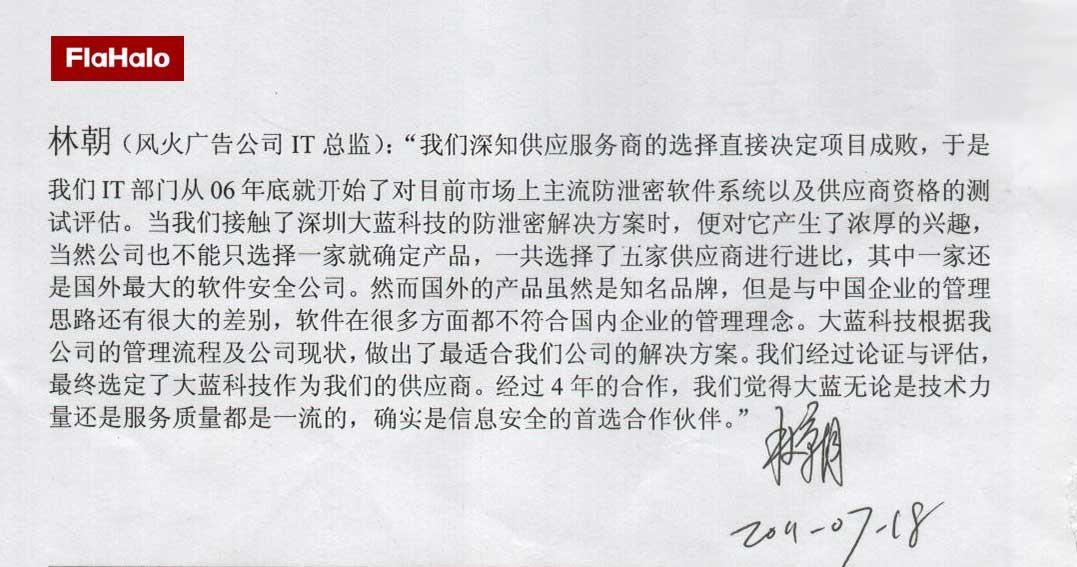 FlaHalo
林朝（风火广告公司 IT 总监）：“我们深知供应服务商的选择直接决定项目成败，于是
我们 IT 部门从 06 年底就开始了对目前市场上主流防泄密软件系统以及供应商资格的测
试评估。当我们接触了深圳大蓝科技的防泄密解决方案时，便对它产生了浓厚的兴趣，
当然公司也不能只选择一家就确定产品，一共选择了五家供应商进行进比，其中一家还
是国外最大的软件安全公司。然而国外的产品虽然是知名品牌，但是与中国企业的管理
思路还有很大的差别，软件在很多方面都不符合国内企业的管理理念。大蓝科技根据我
公司的管理流程及公司现状，做出了最适合我们公司的解决方案。我们经过论证与评估，
最终选定了大蓝科技作为我们的供应商。经过 4 年的合作，我们觉得大蓝无论是技术力
量还是服务质量都是一流的，确实是信息安全的首选合作伙伴。”
林朝
2011-07-18